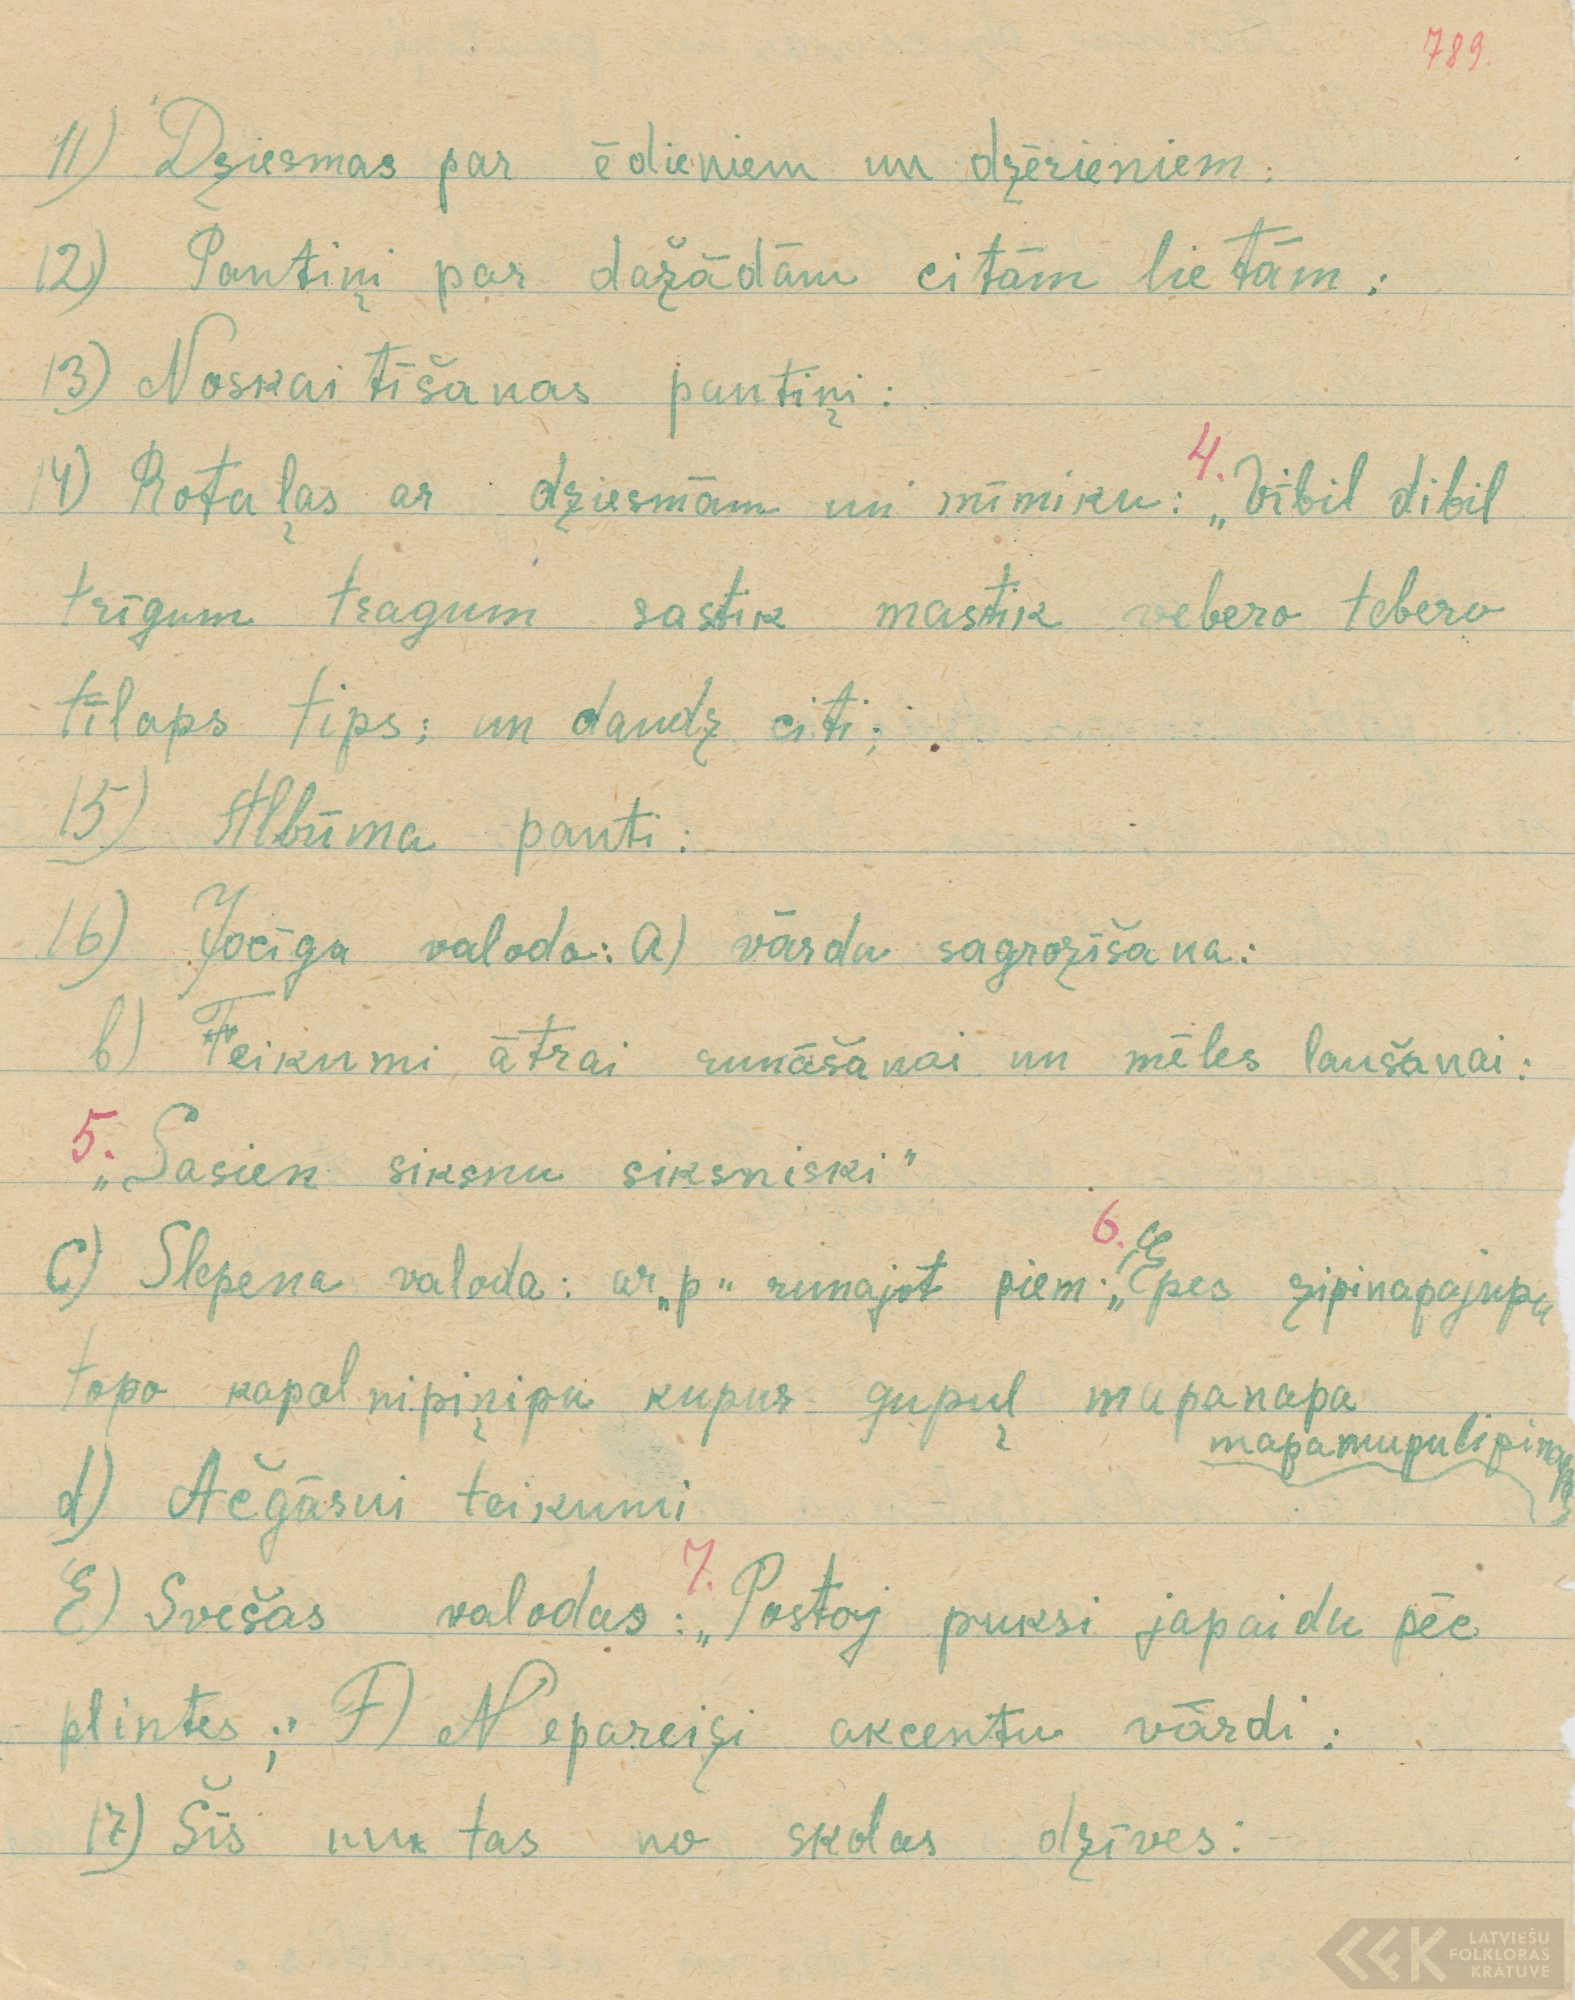 789.
11) Dziesmas par ēdieniem un dzērieniem:
12) Pantiņi par dažādām citām lietām:
13) Noskaitīšanas pantiņi:
14) Rotaļas ar dziesmām un mīmiku: 4. „Vībil dibil
trīgum tragum sastik mastik vebero tebero
tīlaps tips; un daudz citi;
15) Albūma panti:
16) Jocīga valoda: A) vārdu sagrozīšana:
b) Teikumi ātrai runāšanai un mēles laušanai:
5. „Sasien siksnu siksniski"
C) Slepena valoda: ar „p" runajot piem: 6. „Epes zipinapajupu
topo kapalnipiņipu kupur gupuļ mapanapa
mapamupulipinapa
d) Ačgārni teikumi
E) Svešas valodas: 7. „Postoj puksi japaidu pēc
plintes;" F) Nepareizi akcentu vārdi:
17) Šis un tas no skolas dzīves:
LATVIEŠU
FOLKLORAS
KRĀTUVE